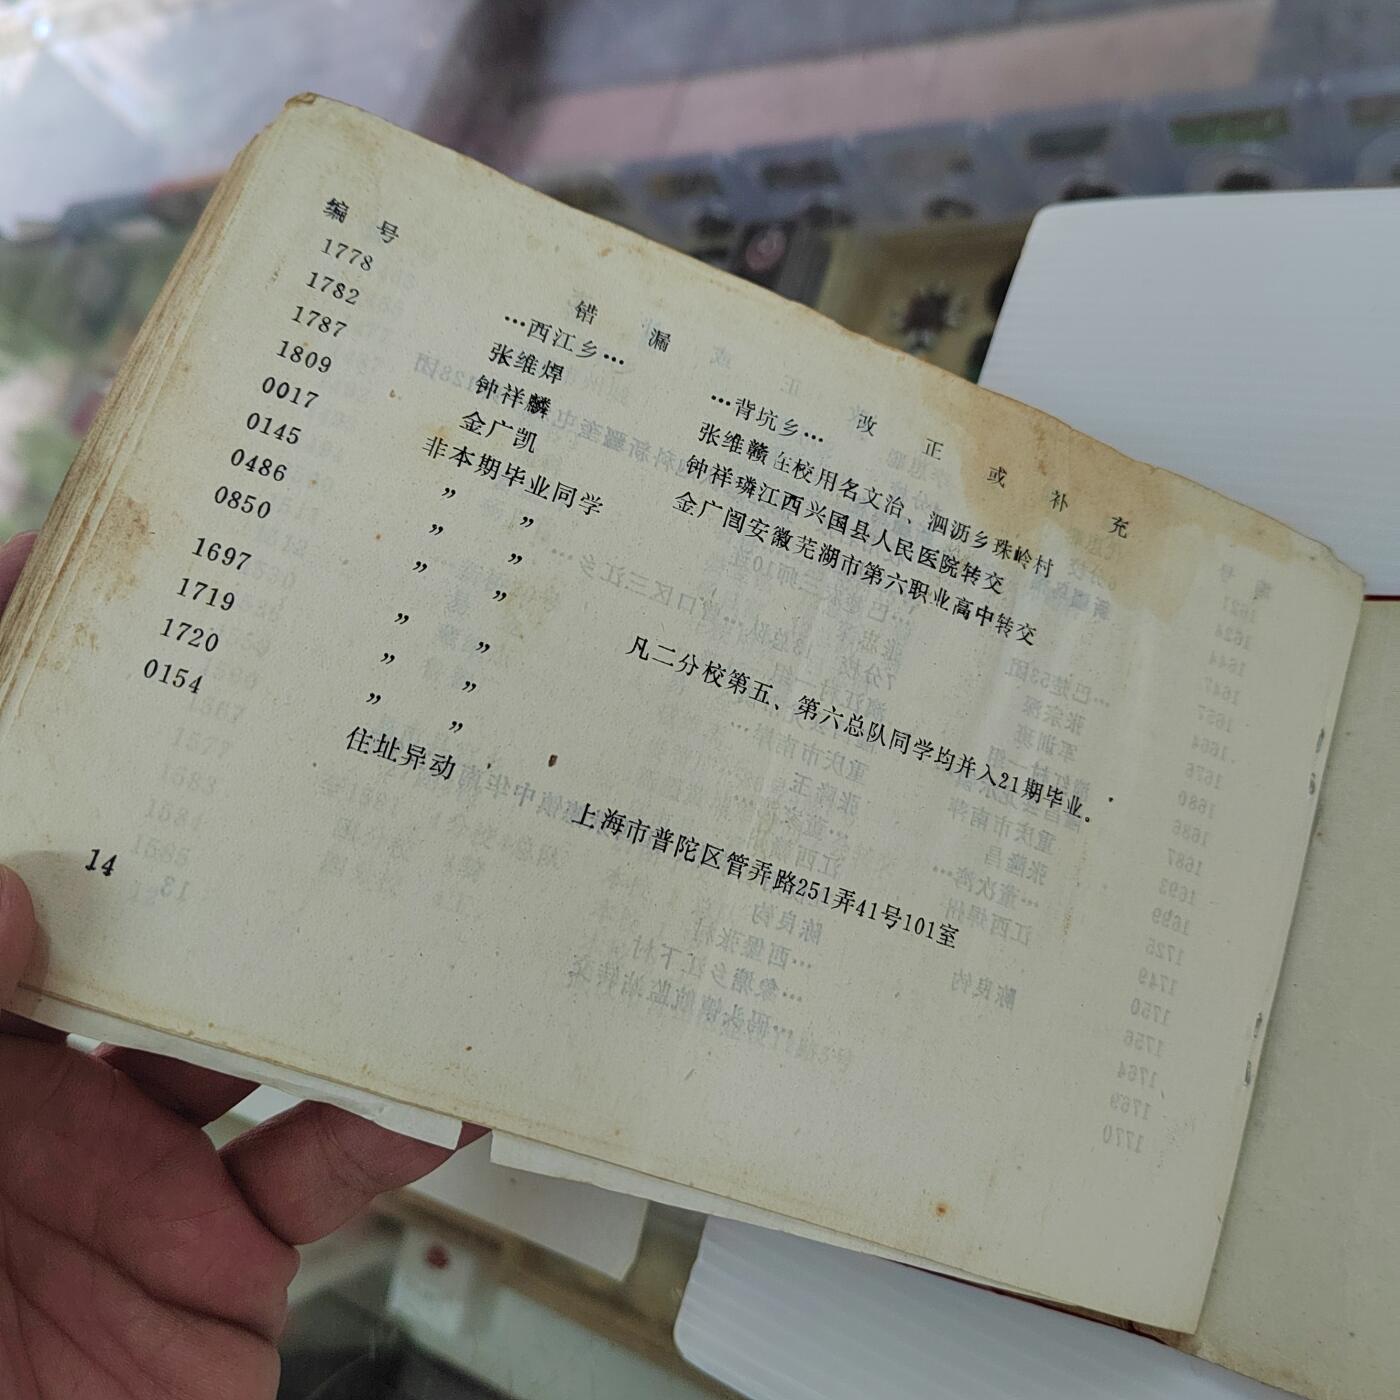 编 号 错 漏 改 正 或 补 充
1778 …西江乡… …背坑乡…
1782 张维焊 张维赣在校用名文治、泗沥乡珠岭村
1787 钟祥麟 钟祥璘江西兴国县人民医院转交
1809 金广凯 金广闿安徽芜湖市第六职业高中转交
0017 非本期毕业同学
0145 〃 〃
0486 〃 〃
0850 〃 〃
凡二分校第五、第六总队同学均并入21期毕业。
1697 〃 〃
1719 〃 〃
1720 〃 〃
0154 住址异动 上海市普陀区管弄路251弄41号101室
14